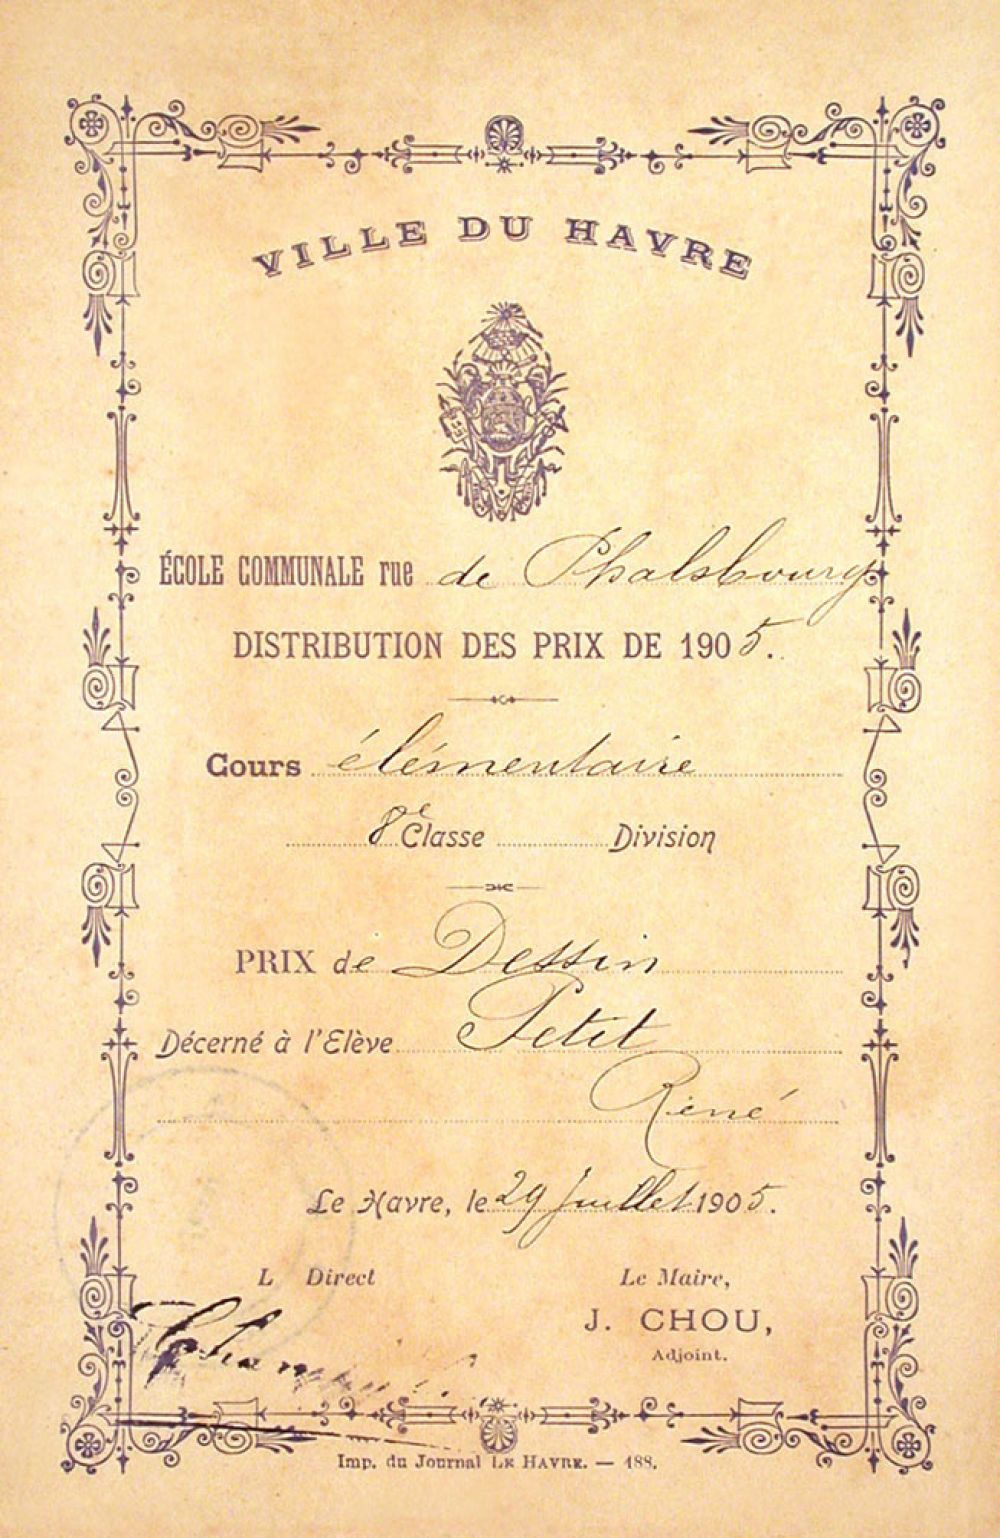 VILLE DU HAVRE
ÉCOLE COMMUNALE rue de Phalsbourg
DISTRIBUTION DES PRIX DE 1905.
Cours élémentaire
8e Classe Division
PRIX de Dessin
Décerné à l'Elève Petit
René
Le Havre, le 29 Juillet 1905.
L Direct Le Maire,
J. CHOU,
Adjoint.
Imp. du Journal LE HAVRE. — 188.